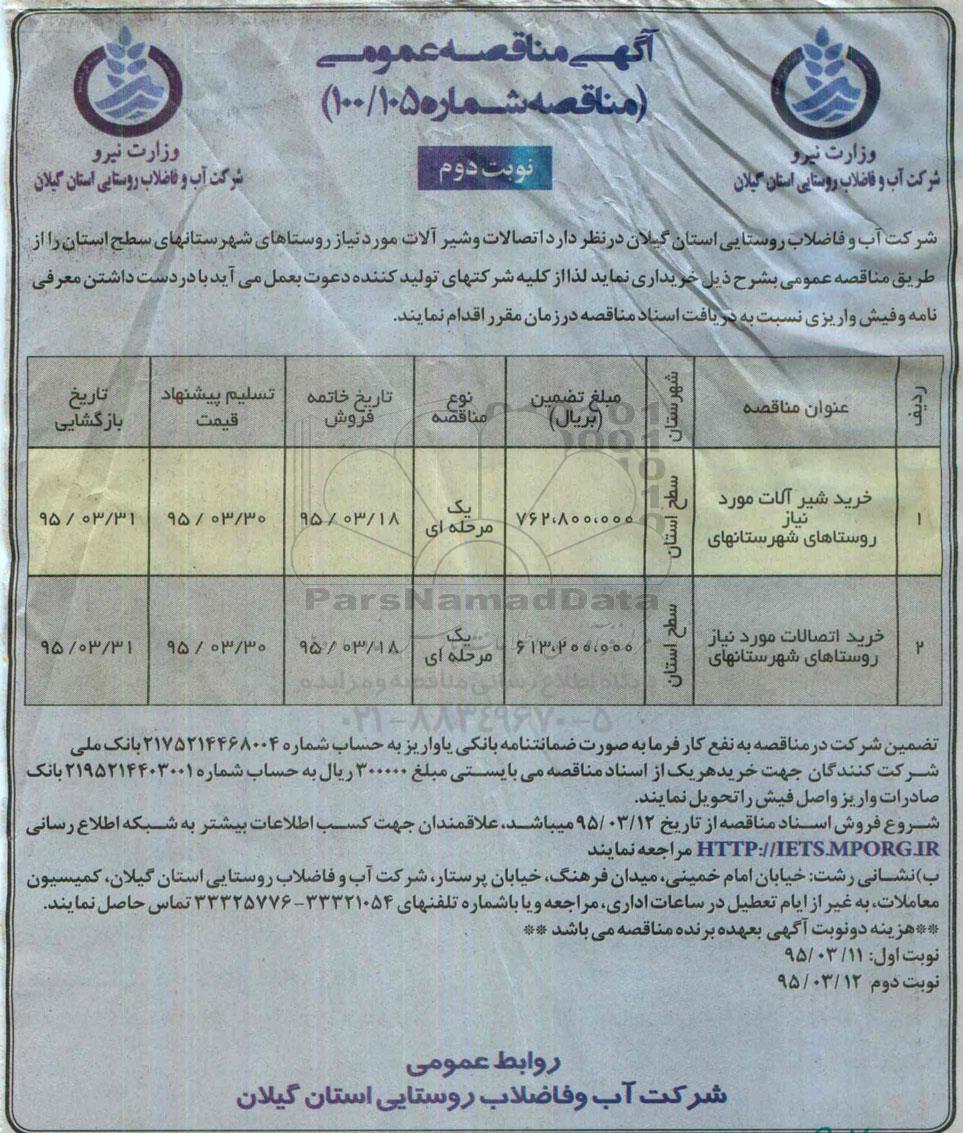 آگهی مناقصه عمومی
(مناقصه شماره ۱۰۰/۱۰۵)
نوبت دوم
وزارت نیرو
شرکت آب و فاضلاب روستایی استان گیلان
وزارت نیرو
شرکت آب و فاضلاب روستایی استان گیلان
شرکت آب و فاضلاب روستایی استان گیلان در نظر دارد اتصالات و شیر آلات مورد نیاز روستاهای شهرستانهای سطح استان را از
طریق مناقصه عمومی بشرح ذیل خریداری نماید لذا از کلیه شرکتهای تولید کننده دعوت بعمل می آید با در دست داشتن معرفی
نامه و فیش واریزی نسبت به دریافت اسناد مناقصه در زمان مقرر اقدام نمایند.
ردیف | عنوان مناقصه | شهرستان | مبلغ تضمین (بریال) | نوع مناقصه | تاریخ خاتمه فروش | تسلیم پیشنهاد قیمت | تاریخ بازگشایی
۱ | خرید شیر آلات مورد نیاز روستاهای شهرستانهای | سطح استان | ۷۶۲،۸۰۰،۰۰۰ | یک مرحله ای | ۹۵ / ۰۳/۱۸ | ۹۵ / ۰۳/۳۰ | ۹۵ / ۰۳/۳۱
۲ | خرید اتصالات مورد نیاز روستاهای شهرستانهای | سطح استان | ۶۱۳،۲۰۰،۰۰۰ | یک مرحله ای | ۹۵ / ۰۳/۱۸ | ۹۵ / ۰۳/۳۰ | ۹۵ /۰۳/۳۱
ParsNamadData
پایگاه اطلاع رسانی مناقصه و مزایده
۰۲۱-۸۸۳۴۹۶۷۰-۵
تضمین شرکت در مناقصه به نفع کار فرما به صورت ضمانتنامه بانکی یا واریز به حساب شماره ۲۱۷۵۲۱۴۴۶۸۰۰۴ بانک ملی
شرکت کنندگان جهت خرید هر یک از اسناد مناقصه می بایستی مبلغ ۳۰۰۰۰۰ ریال به حساب شماره ۲۱۹۵۲۱۴۴۰۳۰۰۱ بانک
صادرات واریز و اصل فیش را تحویل نمایند.
شروع فروش اسناد مناقصه از تاریخ ۹۵/۰۳/۱۲ میباشد، علاقمندان جهت کسب اطلاعات بیشتر به شبکه اطلاع رسانی
HTTP://IETS.MPORG.IR مراجعه نمایند
ب)نشانی رشت: خیابان امام خمینی، میدان فرهنگ، خیابان پرستار، شرکت آب و فاضلاب روستایی استان گیلان، کمیسیون
معاملات، به غیر از ایام تعطیل در ساعات اداری، مراجعه و یا باشماره تلفنهای ۳۳۳۲۱۰۵۴-۳۳۳۲۵۷۷۶ تماس حاصل نمایند.
**هزینه دونوبت آگهی بعهده برنده مناقصه می باشد **
نوبت اول: ۹۵/۰۳/۱۱
نوبت دوم ۹۵/۰۳/۱۲
روابط عمومی
شرکت آب وفاضلاب روستایی استان گیلان